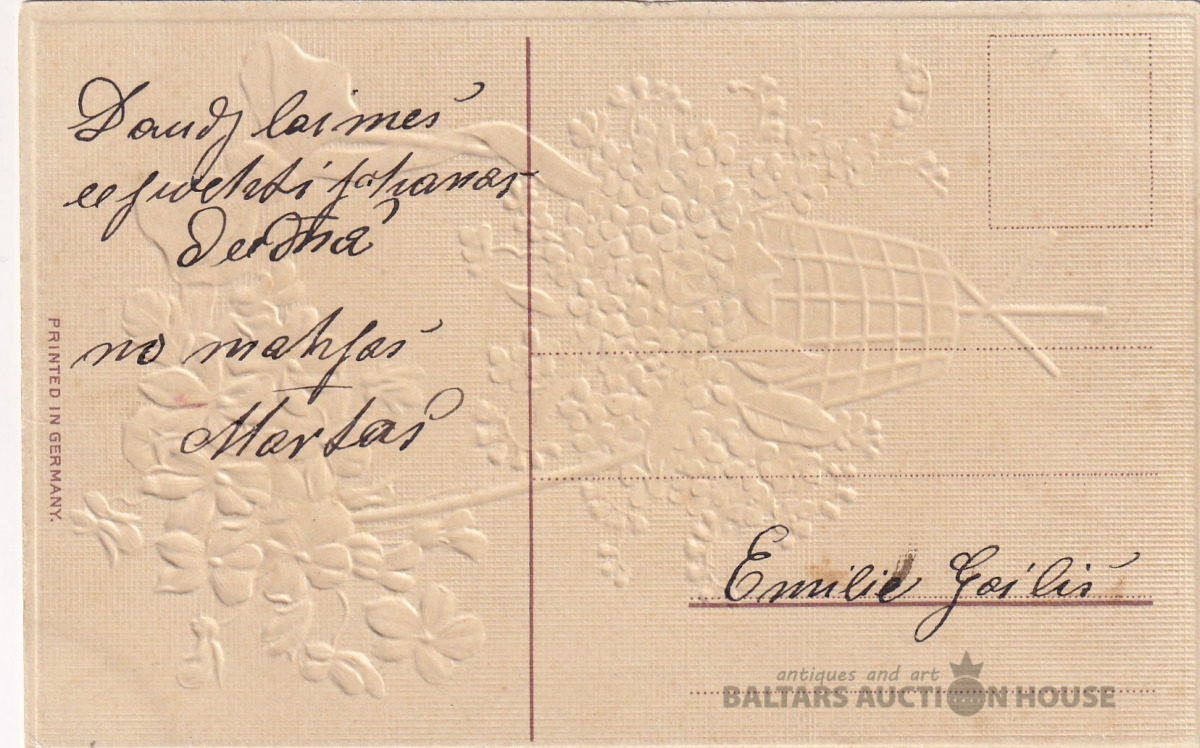 Daudz laimes
eeswehti
deenā
no mahsas
Martas
PRINTED IN GERMANY.
Emilie Gailis
antiques and art
BALTARS AUCTION HOUSE